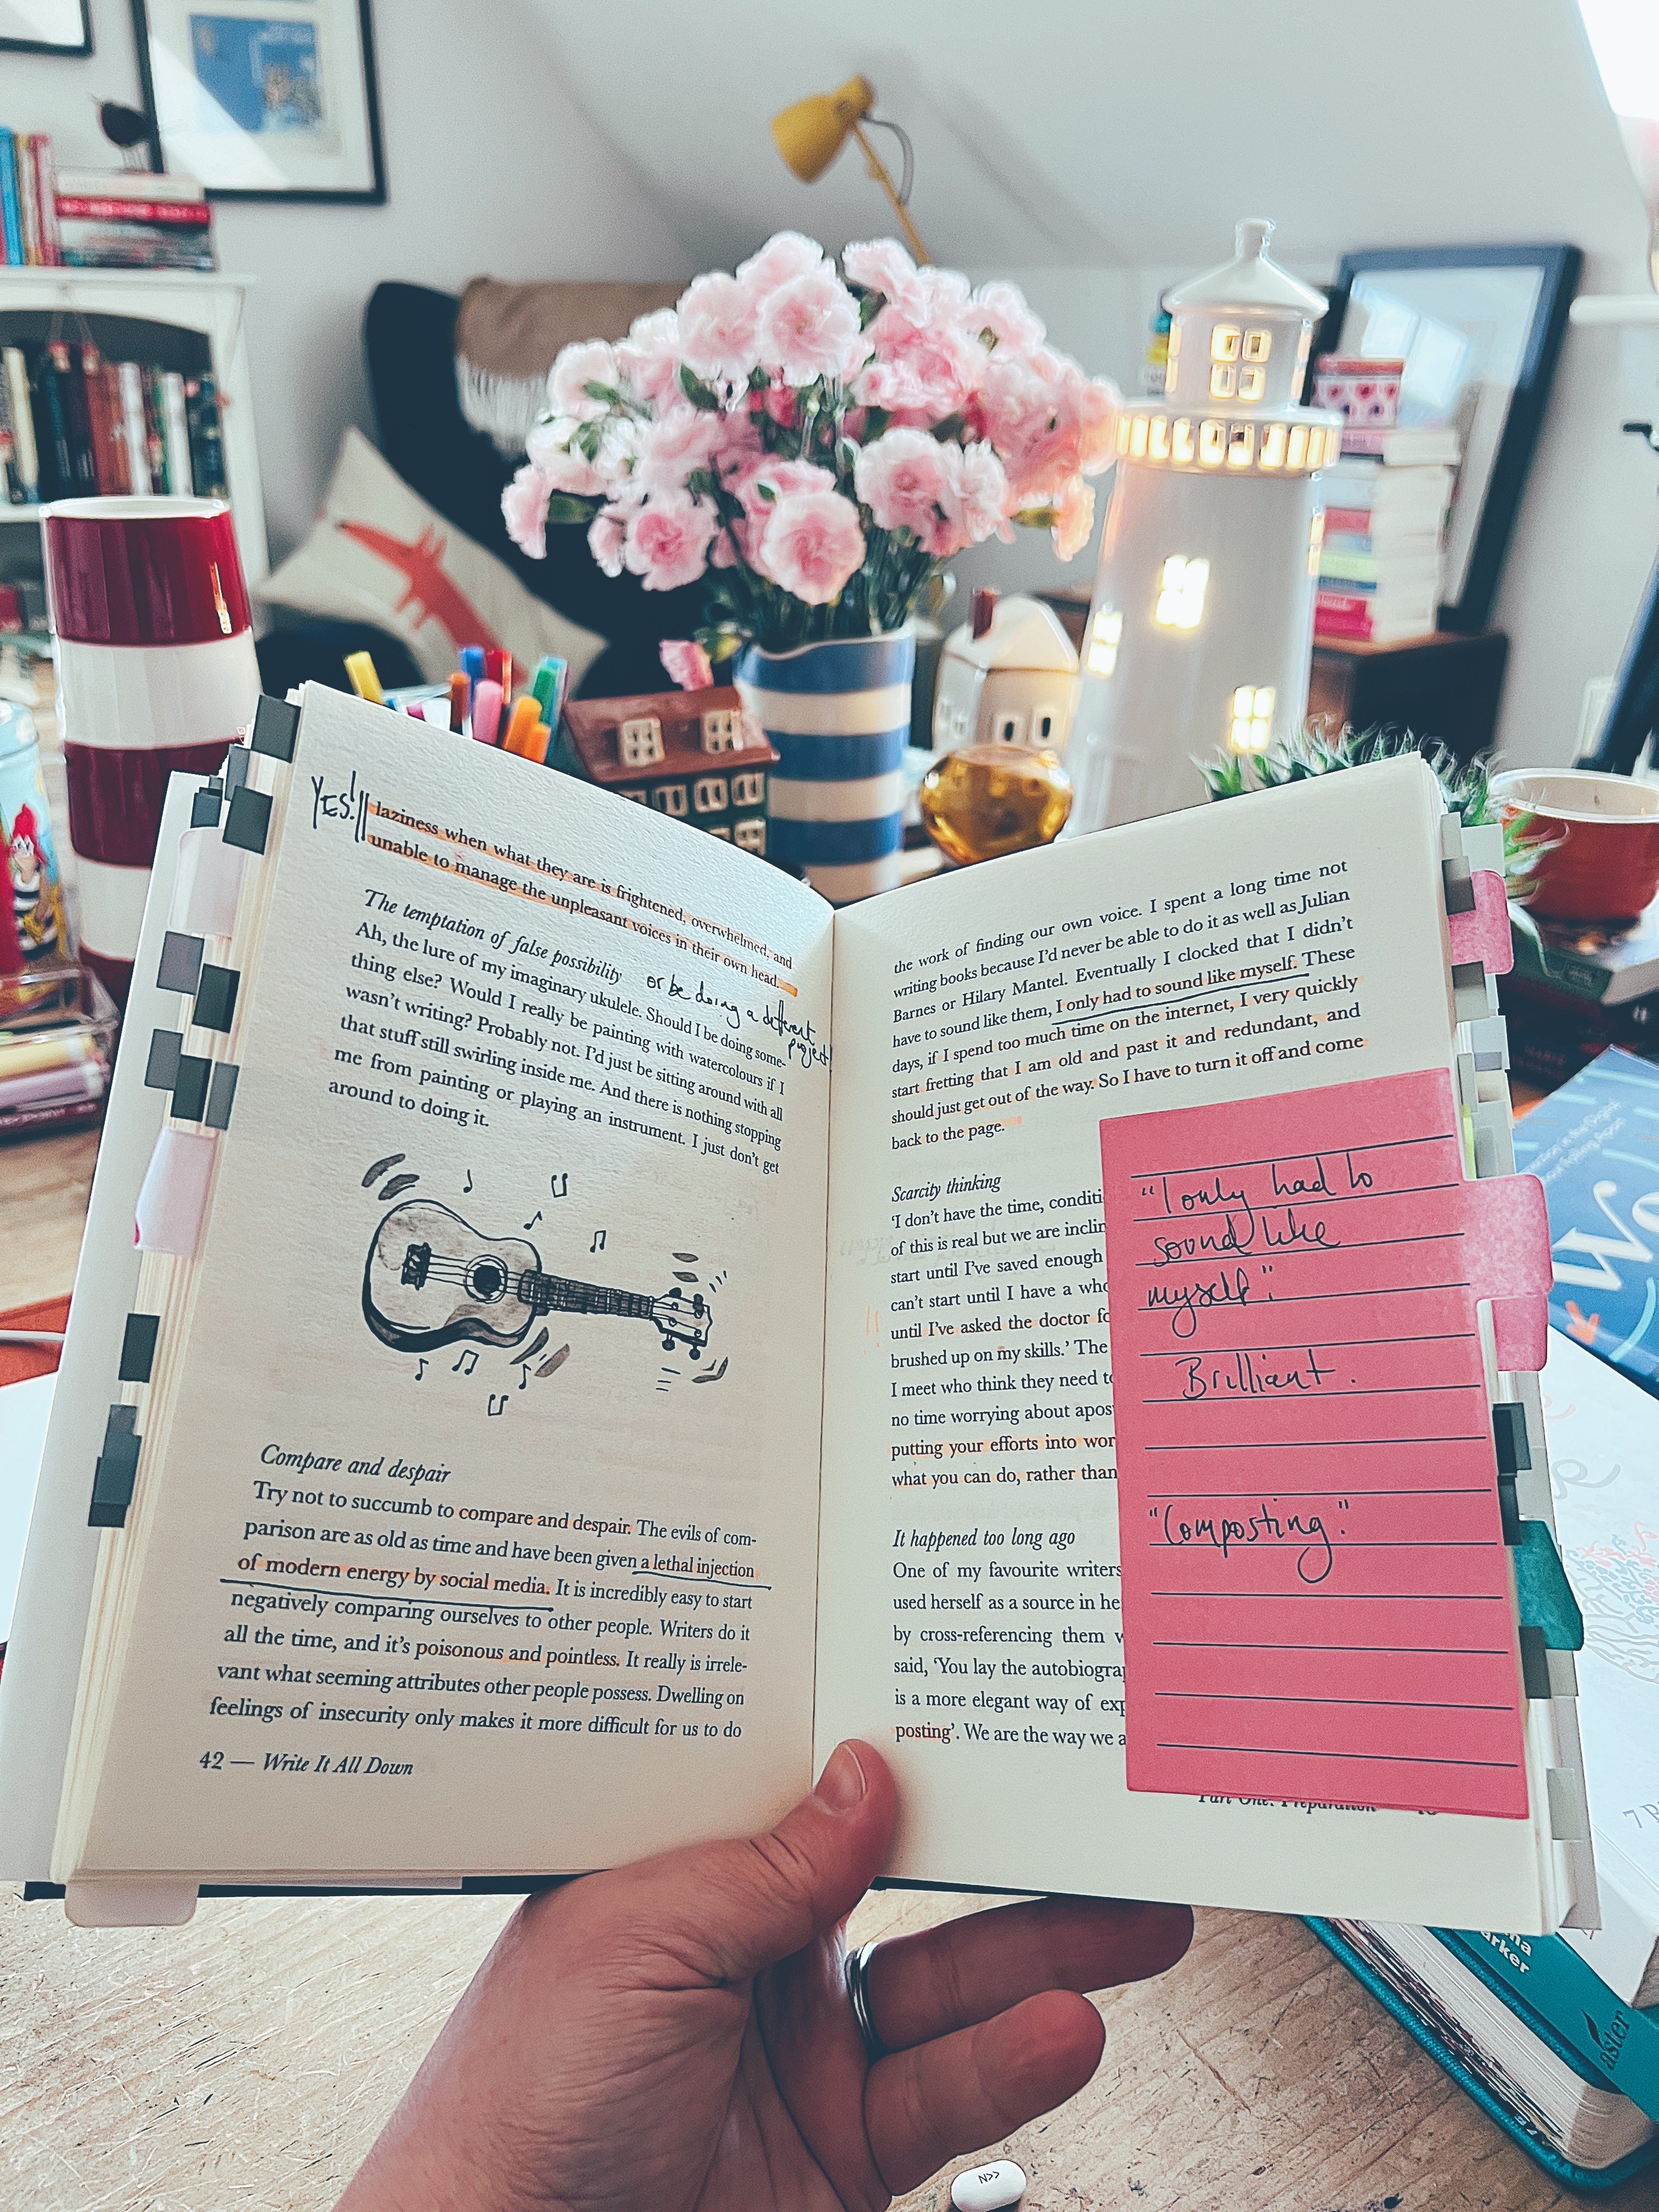 YES!
laziness when what they are is frightened, overwhelmed, and
unable to manage the unpleasant voices in their own head.
The temptation of false possibility
or be doing a different
project!
Ah, the lure of my imaginary ukulele. Should I be doing some-
thing else? Would I really be painting with watercolours if I
wasn't writing? Probably not. I'd just be sitting around with all
that stuff still swirling inside me. And there is nothing stopping
me from painting or playing an instrument. I just don't get
around to doing it.
Compare and despair
Try not to succumb to compare and despair. The evils of com-
parison are as old as time and have been given a lethal injection
of modern energy by social media. It is incredibly easy to start
negatively comparing ourselves to other people. Writers do it
all the time, and it's poisonous and pointless. It really is irrele-
vant what seeming attributes other people possess. Dwelling on
feelings of insecurity only makes it more difficult for us to do
42 — Write It All Down
the work of finding our own voice. I spent a long time not
writing books because I'd never be able to do it as well as Julian
Barnes or Hilary Mantel. Eventually I clocked that I didn't
have to sound like them, I only had to sound like myself. These
days, if I spend too much time on the internet, I very quickly
start fretting that I am old and past it and redundant, and
should just get out of the way. So I have to turn it off and come
back to the page.
Scarcity thinking
'I don't have the time, conditi
of this is real but we are inclin
start until I've saved enough
can't start until I have a who
until I've asked the doctor fo
brushed up on my skills.' The
I meet who think they need to
no time worrying about apos
putting your efforts into wor
what you can do, rather than
It happened too long ago
One of my favourite writers
used herself as a source in he
by cross-referencing them w
said, 'You lay the autobiograp
is a more elegant way of exp
posting'. We are the way we a
Part One: Preparation
"I only had to
sound like
myself".
Brilliant.
"Composting."
aster
N>>